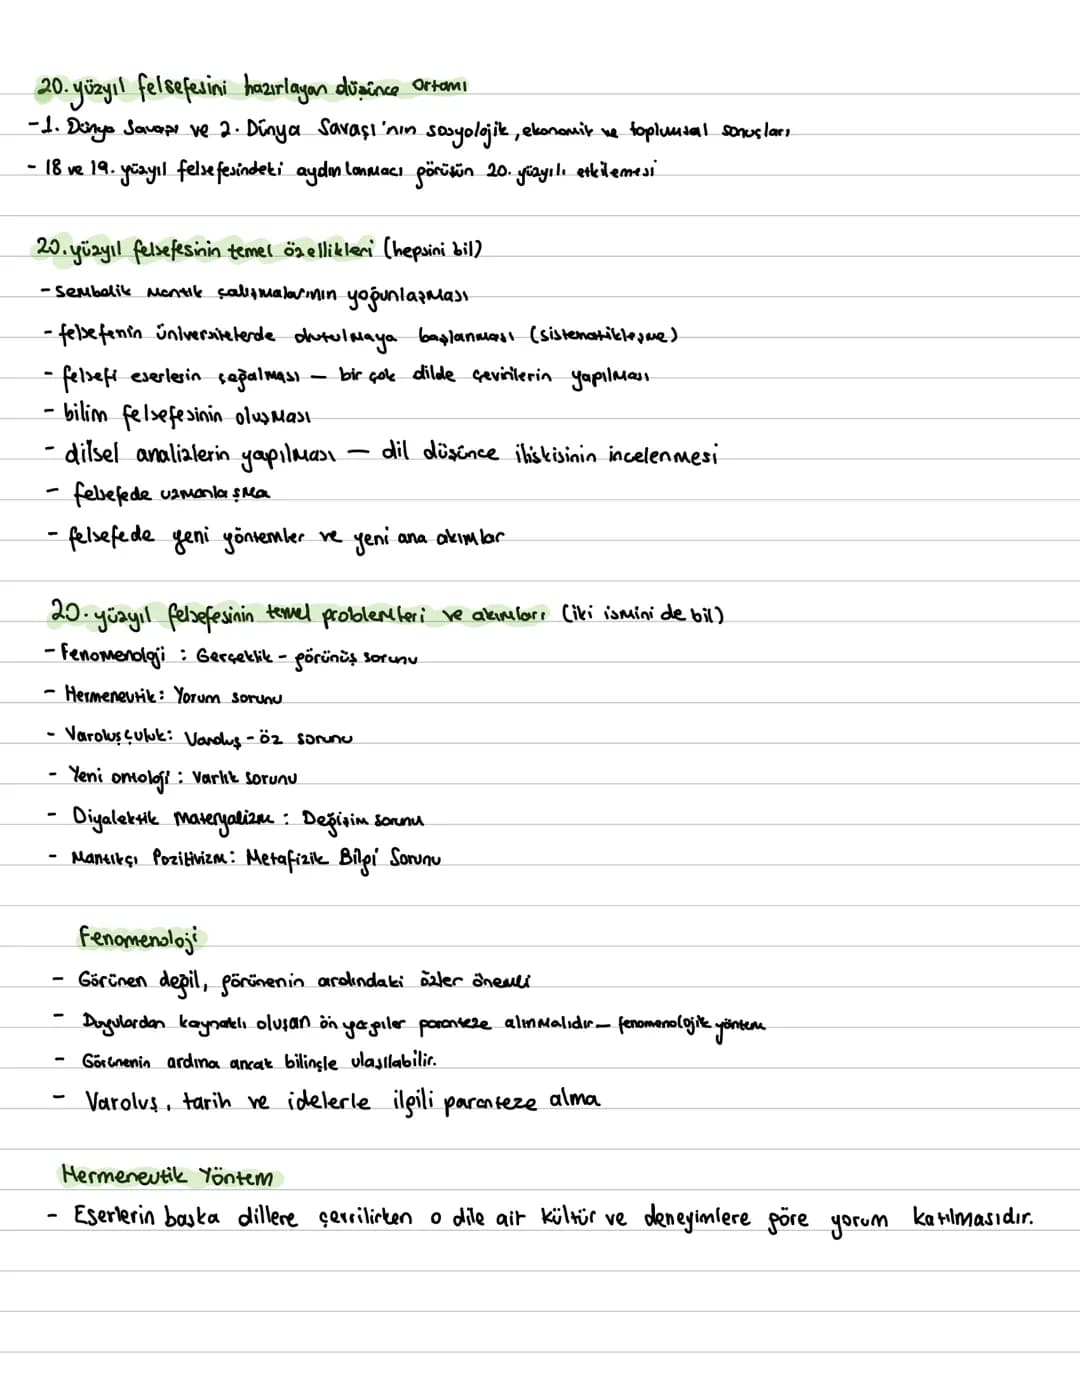 20. yüzyıl felsefesini hazırlayan düşünce ortamı
-1. Dünya Savaşı ve 2. Dünya Savaşı'nın sosyolojik, ekonomik ve toplumsal sonuçları
- 18 ve 19. yüzyıl felsefesindeki aydınlanmacı görüşün 20. yüzyılı etkilemesi
20. yüzyıl felsefesinin temel özellikleri (hepsini bil)
- Sembolik Mantık çalışmalarının yoğunlaşması
- felsefenin üniversitelerde okutulmaya başlanması (sistematikleşme)
- felsefi eserlerin çoğalması — bir çok dilde çevirilerin yapılması
- bilim felsefesinin oluşması
- dilsel analizlerin yapılması — dil düşünce ilişkisinin incelenmesi
- felsefede uzmanlaşma
- felsefede yeni yöntemler ve yeni ana akımlar
20. yüzyıl felsefesinin temel problemleri ve akımları (iki ismini de bil)
- Fenomenoloji : Gerçeklik - görünüş sorunu
- Hermeneutik: Yorum sorunu
- Varoluşçuluk: Varoluş - öz sorunu
- Yeni ontoloji : Varlık sorunu
- Diyalektik Materyalizm : Değişim sorunu
- Mantıkçı Pozitivizm: Metafizik Bilgi Sorunu
Fenomenoloji
- Görünen değil, görünenin ardındaki özler önemli
- Duygulardan kaynaklı oluşan ön yargılar paranteze alınmalıdır — fenomenolojik yöntem
- Görünenin ardına ancak bilinçle ulaşılabilir.
- Varoluş, tarih ve idelerle ilgili paranteze alma
Hermeneutik Yöntem
- Eserlerin başka dillere çevrilirken o dile ait kültür ve deneyimlere göre yorum katılmasıdır.